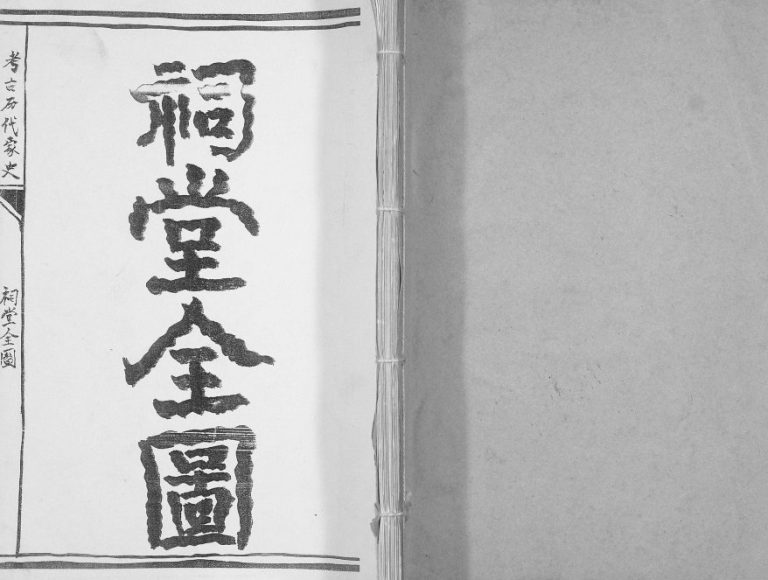 祠堂全圖
考古历代家史
祠堂全圖